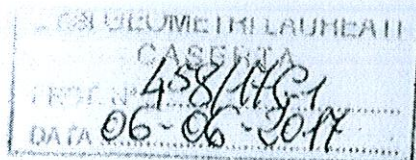 GEOMETRI LAUREATI
CASERTA
PROT. N. 458/17C1
DATA 06-06-2017